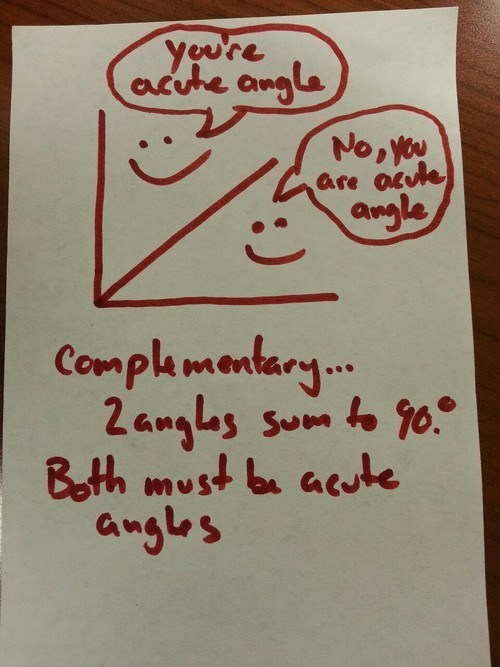 you're
acute angle
No, you
are acute
angle
Complementary...
2 angles sum to 90.°
Both must be acute
angles